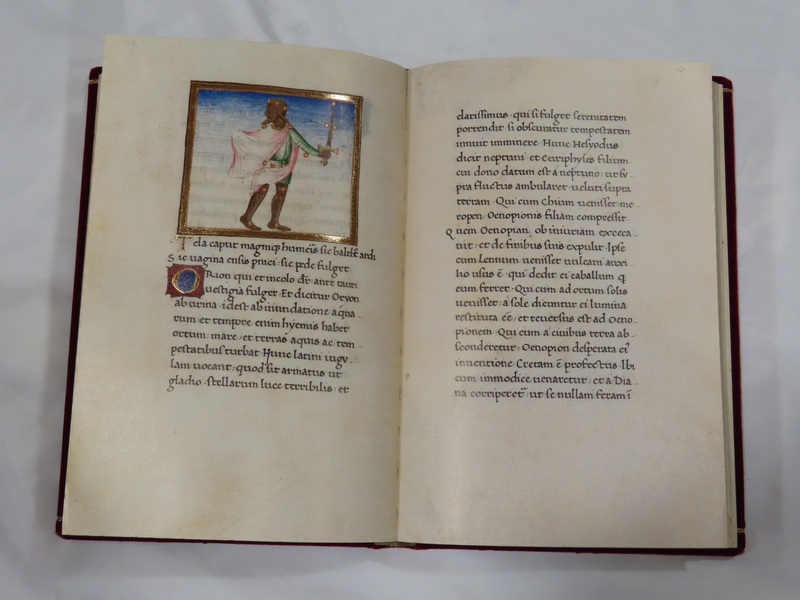 Tela caput magniqꝫ humeris sic baltheꝰ ardꝫ
Sic uagina ensis pnici sic pede fulget
ORion qui et incolo dr̄ ante tauri
uestigia fulget. Et dicitur Oryon
ab urina idest ab inundatione aqua
rum et tempore enim hyemis habet
ortum: mare et terras aquis ac tem
pestatibus turbat. Hunc latini iugu
lam uocant: quod sit armatus ut
gladio stellarum luce terribilis et
clarissimus qui si fulget serenitatem
portendit si obscuratur tempestatem
innuit imminere. Hunc Hesyodus
dicit neptuni et Curiphyles filium
cui dono datum est a neptuno ut su
pra fluctus ambularet ueluti supra
terram. Qui cum Chium uenisset me
ropen Oenopionis filiam compressit
Quem Oenopian ob iniuriam excæca
uit et de finibus suis expulit. Ipse
cum Lennum uenisset uulcani auxi
lio usus ē qui dedit ei caballum q
eum ferret. Qui cum ad ortum solis
uenisset a sole dicuntur ei lumina
restituta eē et reuersus est ad Oeno
pionem. Qui cum a ciuibus terra ab
sconderetur Oenopion desperata eiꝰ
inuentione Cretam ē profectus. Ibi
cum immodice uenaretur et a Dia
na corriperet ut se nullam feram